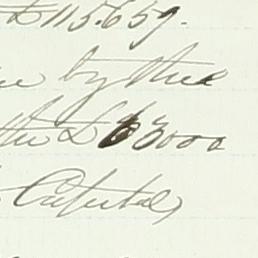 £115.659.
by the
the £63000
Capital,